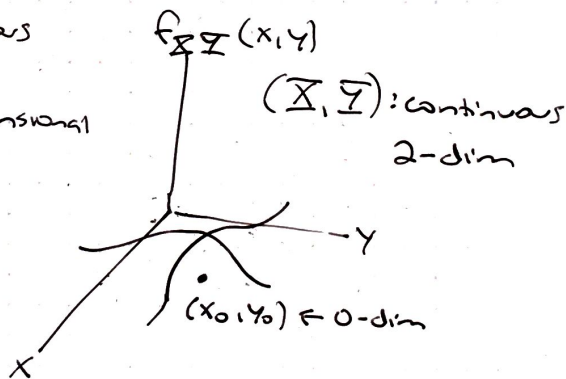 f_XY (x,y)
(X, Y): continuous
2-dim
y
(x₀, y₀) ← 0-dim
x